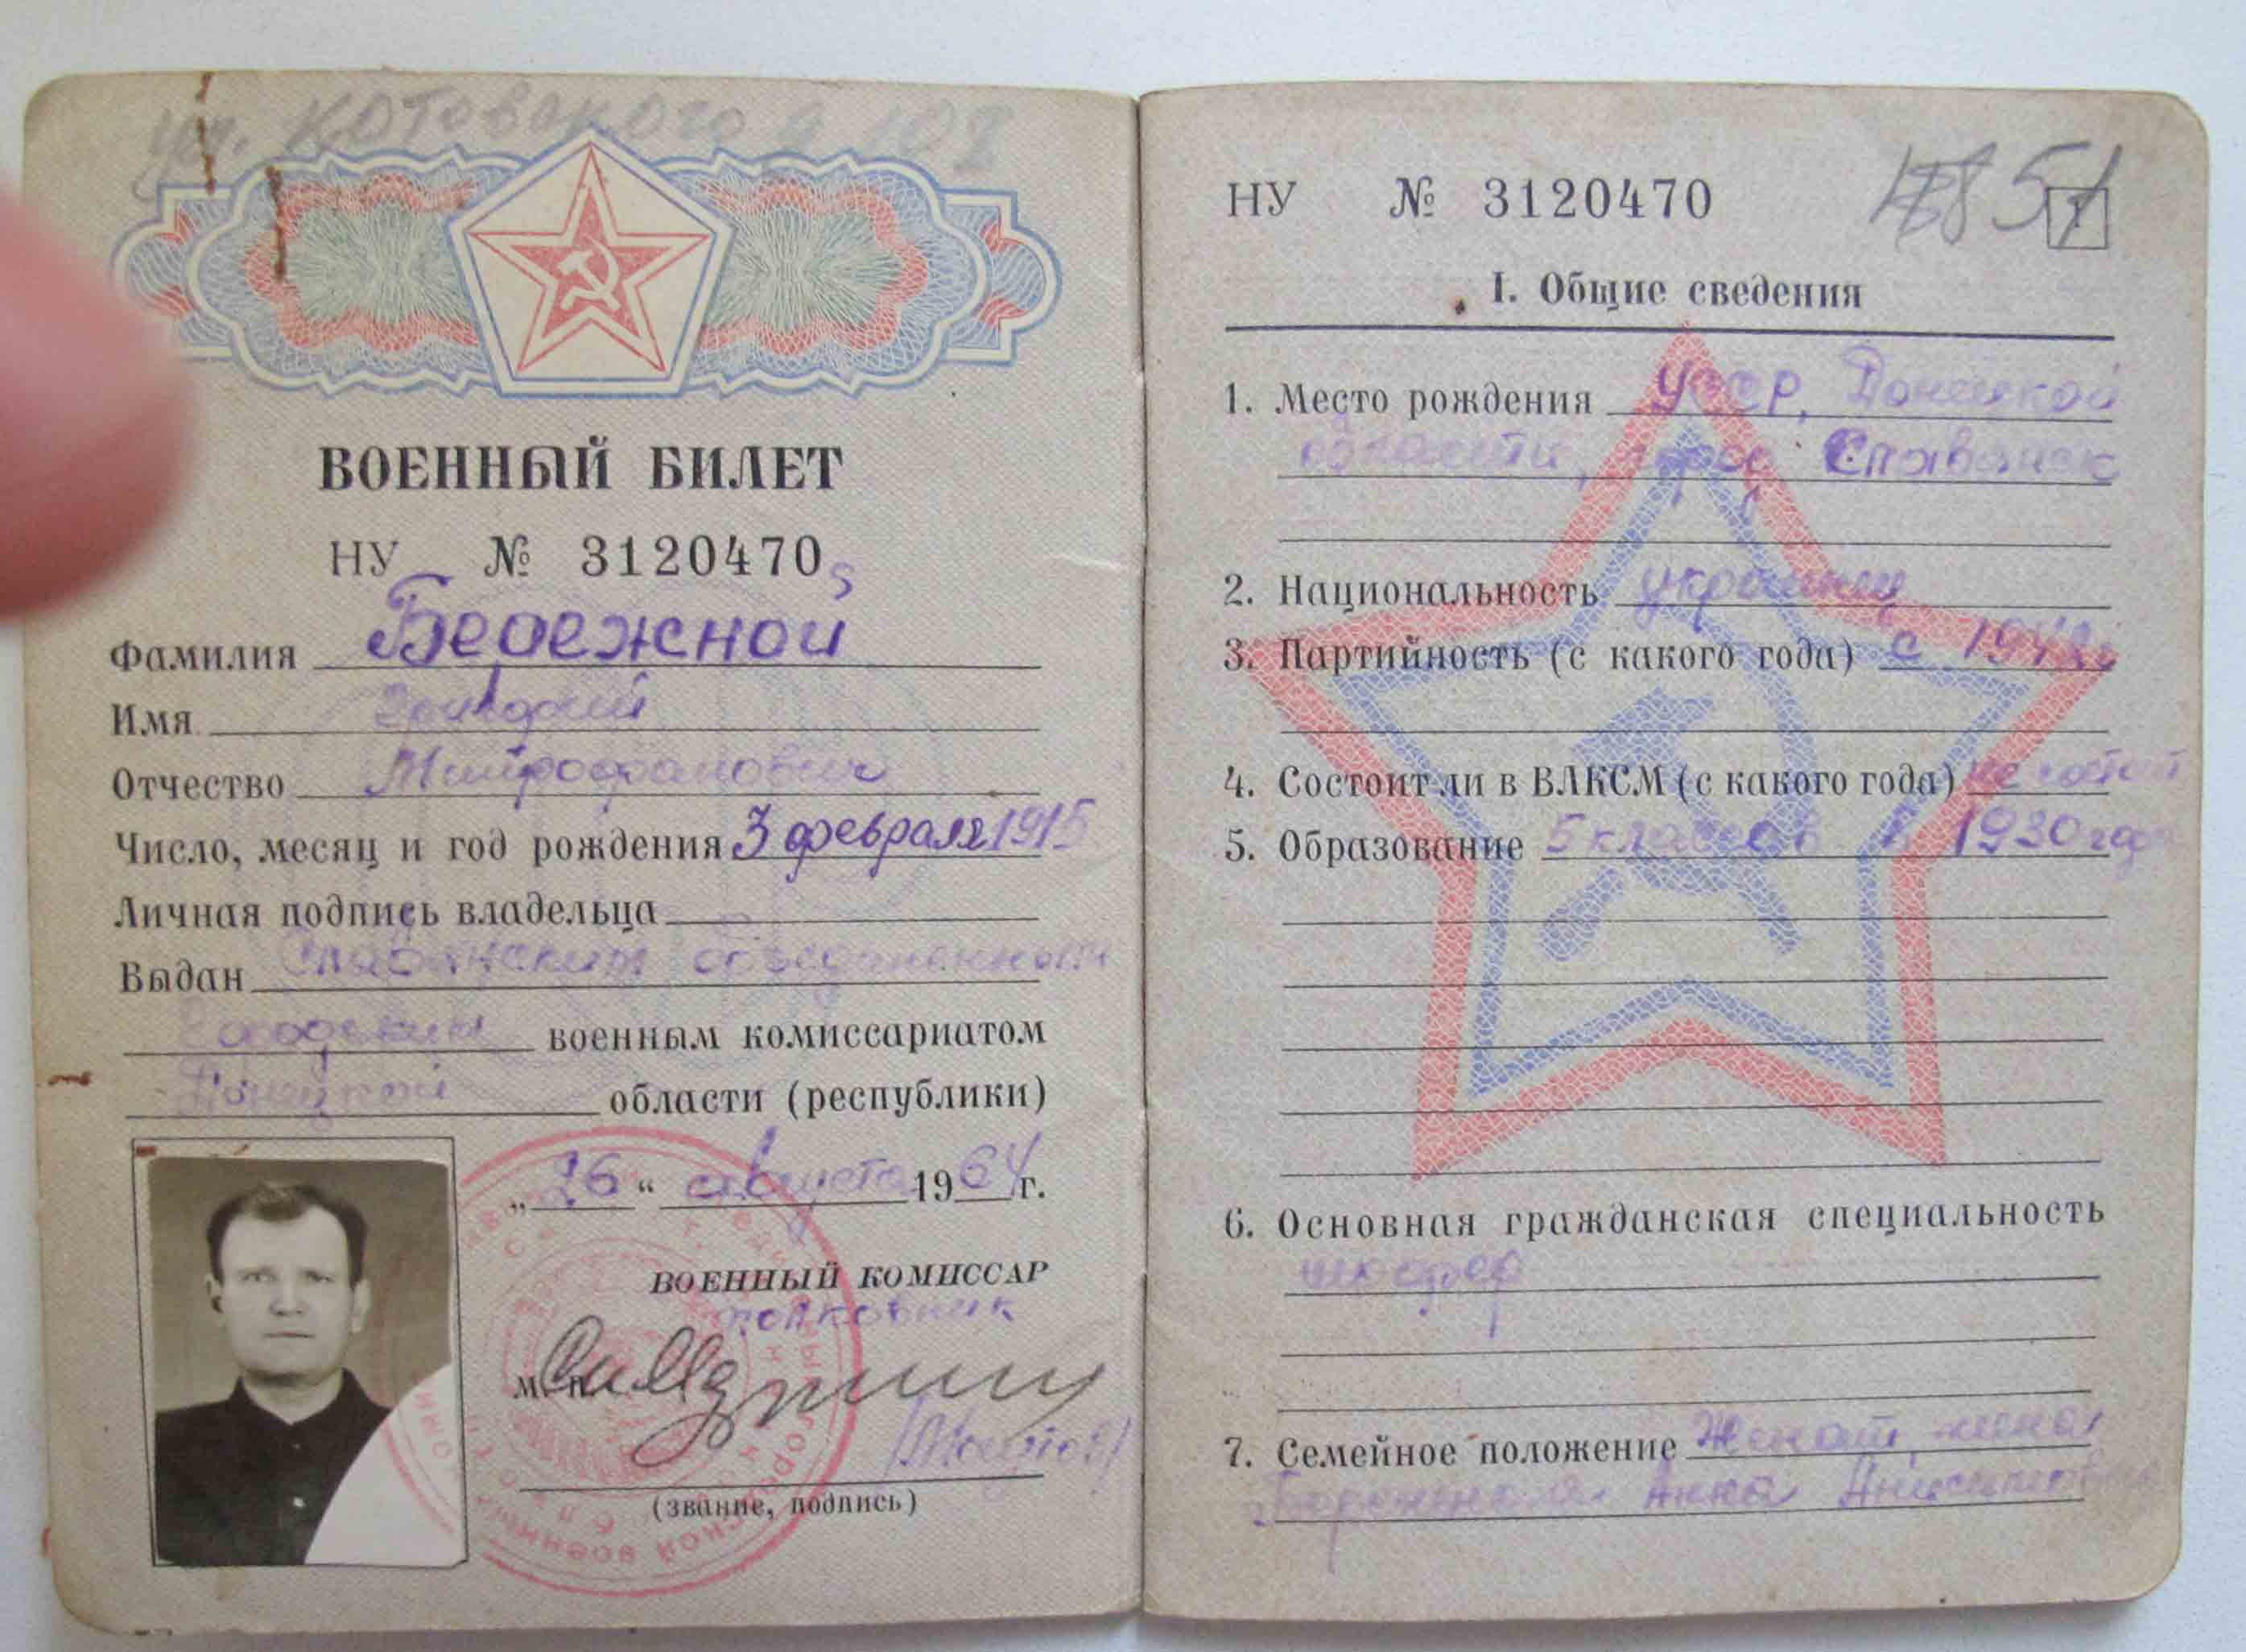 ул. Котовского д 102
ВОЕННЫЙ БИЛЕТ
НУ № 3120470
Фамилия Бережной
Имя
Отчество Митрофанович
Число, месяц и год рождения 3 февраля 1915
Личная подпись владельца
Выдан Славянским объединенным
Городским военным комиссариатом
Донецкой области (республики)
„26“ августа 1964 г.
ВОЕННЫЙ КОМИССАР
полковник
М. П.
(звание, подпись)
НУ № 3120470
1
I. Общие сведения
1. Место рождения УССР, Донецкой
области, город Славянск
2. Национальность украинец
3. Партийность (с какого года) с
4. Состоит ли в ВЛКСМ (с какого года) не состоит
5. Образование 5 классов в 1930 году
6. Основная гражданская специальность
шофер
7. Семейное положение Женат, жена
Анна